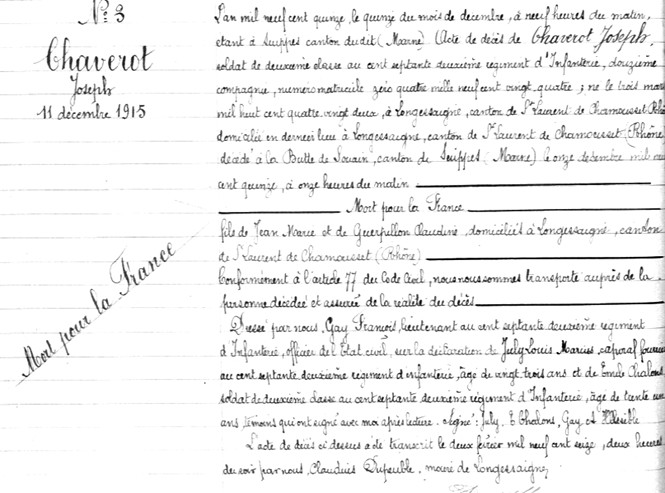 N° 3
Chaverot
Joseph
11 décembre 1915
Mort pour la France
L'an mil neuf cent quinze, le quinze du mois de décembre, à neuf heures du matin,
étant à Suippes canton dudit (Marne) Acte de décès de Chaverot Joseph,
soldat de deuxième classe au cent septante deuxième régiment d'Infanterie, douzième
compagnie, numéro matricule zéro quatre mille neuf cent vingt quatre; né le trois mars
mil huit cent quatre vingt deux, à Longessaigne, canton de St Laurent de Chamousset (Rhône
domicilié en dernier lieu à Longessaigne, canton de St Laurent de Chamousset (Rhône
décédé à la Butte de Souain, canton de Suippes (Marne) le onze décembre mil neu
cent quinze, à onze heures du matin
Mort pour la France
fils de Jean Marie et de Guerpillon Claudine, domiciliés à Longessaigne, canton
de St Laurent de Chamousset (Rhône)
Conformément à l'article 77 du Code Civil, nous nous sommes transporté auprès de la
personne décédée et assuré de la réalité du décès
Dressé par nous, Gay François, lieutenant au cent septante deuxième régiment
d'Infanterie, officier de l'Etat civil, sur la déclaration de July Louis caporal fourrier
au cent septante deuxième régiment d'infanterie, âgé de vingt trois ans et de Emile Chalons,
soldat de deuxième classe au cent septante deuxième régiment d'Infanterie, âgé de trente
ans, témoins qui ont signé avec moi après lecture. Signé: July. E Chalons, Gay, et
L'acte de décès ci dessus a été transcrit le deux février mil neuf cent seize, deux heures
du soir par nous, Claudius Dupeuble, maire de Longessaigne,